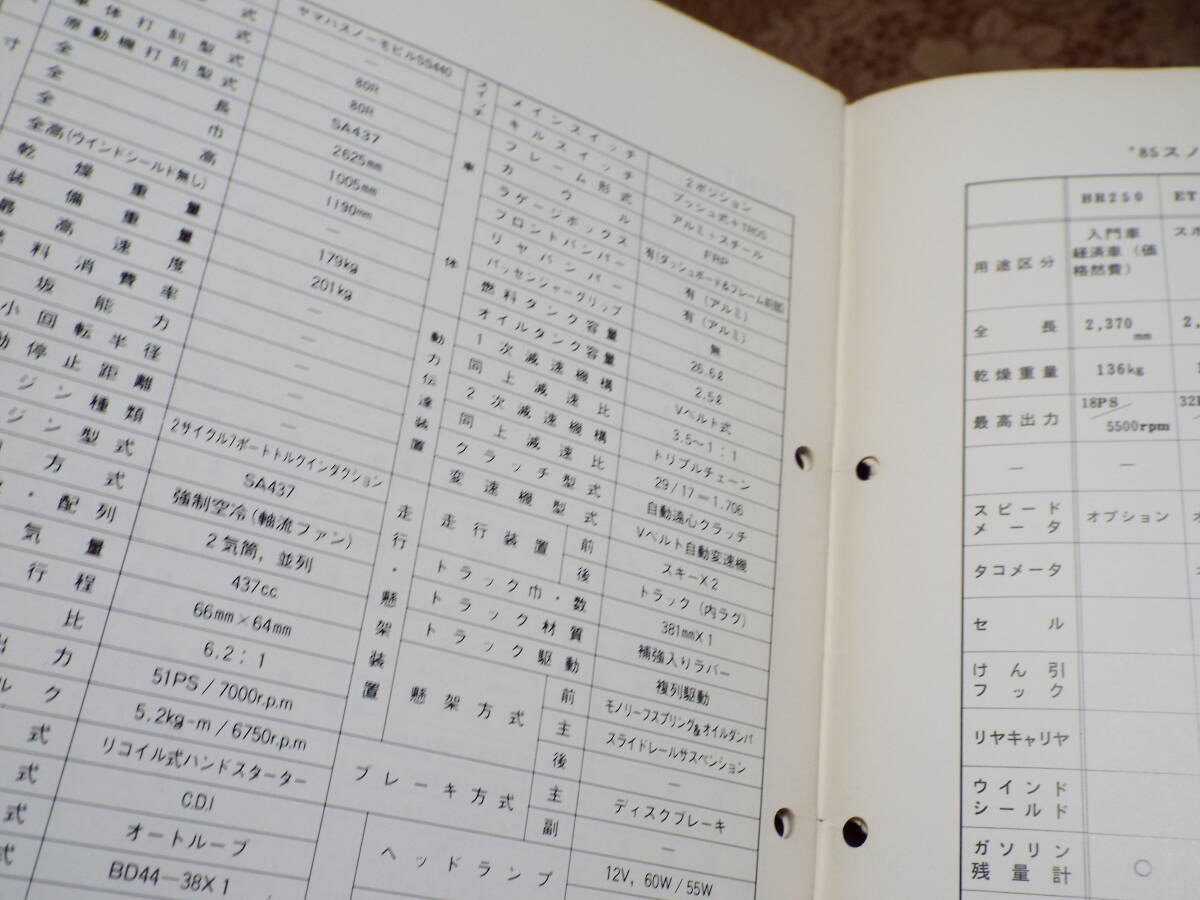 式 ヤマハスノーモビルSS440
式 —
車体打刻型式 80R
原動機打刻型式 80R
全長 SA437
全巾 2625mm
全高 1005mm
全高(ウインドシールド無し) 1190mm
乾燥重量 —
装備重量 179kg
最高速度 201kg
燃料消費率 —
坂能力 —
小回転半径 —
動停止距離 —
ジン種類 2サイクル7ポートトルクインダクション
ジン型式 SA437
方式 強制空冷(軸流ファン)
・配列 2気筒, 並列
気量 437c.c.
行程 66mm×64mm
比 6.2:1
出力 51PS/7000r.p.m
ルク 5.2kg-m/6750r.p.m
式 リコイル式ハンドスターター
式 C.D.I
式 オートルーブ
式 BD44-38X1
スイッチ
メインスイッチ 2ポジション
キルスイッチ プッシュ式+TROS
車体
フレーム形式 アルミ+スチール
カウル FRP
ラゲージボックス 有(ダッシュボード&フレーム前部)
フロントバンパー 有(アルミ)
リヤバンパー 有(アルミ)
パッセンジャーグリップ 無
燃料タンク容量 26.6ℓ
オイルタンク容量 2.5ℓ
動力伝達装置
1次減速機構 Vベルト式
同上減速比 3.5~1:1
2次減速機構 トリプルチェーン
同上減速比 29/17=1.706
クラッチ型式 自動遠心クラッチ
変速機型式 Vベルト自動変速機
走行・懸架装置
走行装置 前 スキーX2
後 トラック(内ラグ)
トラック巾・数 381mmX1
トラック材質 補強入りラバー
トラック駆動 複列駆動
懸架方式 前 モノリーフスプリング&オイルダンパ
主 スライドレールサスペンション
後 —
ブレーキ方式 主 ディスクブレーキ
副 —
ヘッドランプ 12V, 60W/55W
'85スノ
BR250 ET
用途区分 入門車 スポ
経済車(価
格燃費)
全長 2,370 mm 2,
乾燥重量 136kg 1
最高出力 18PS/5500rpm 32
— —
スピードメータ オプション オ
タコメータ
セル
けん引フック
リヤキャリヤ
ウインドシールド
ガソリン残量計 ○